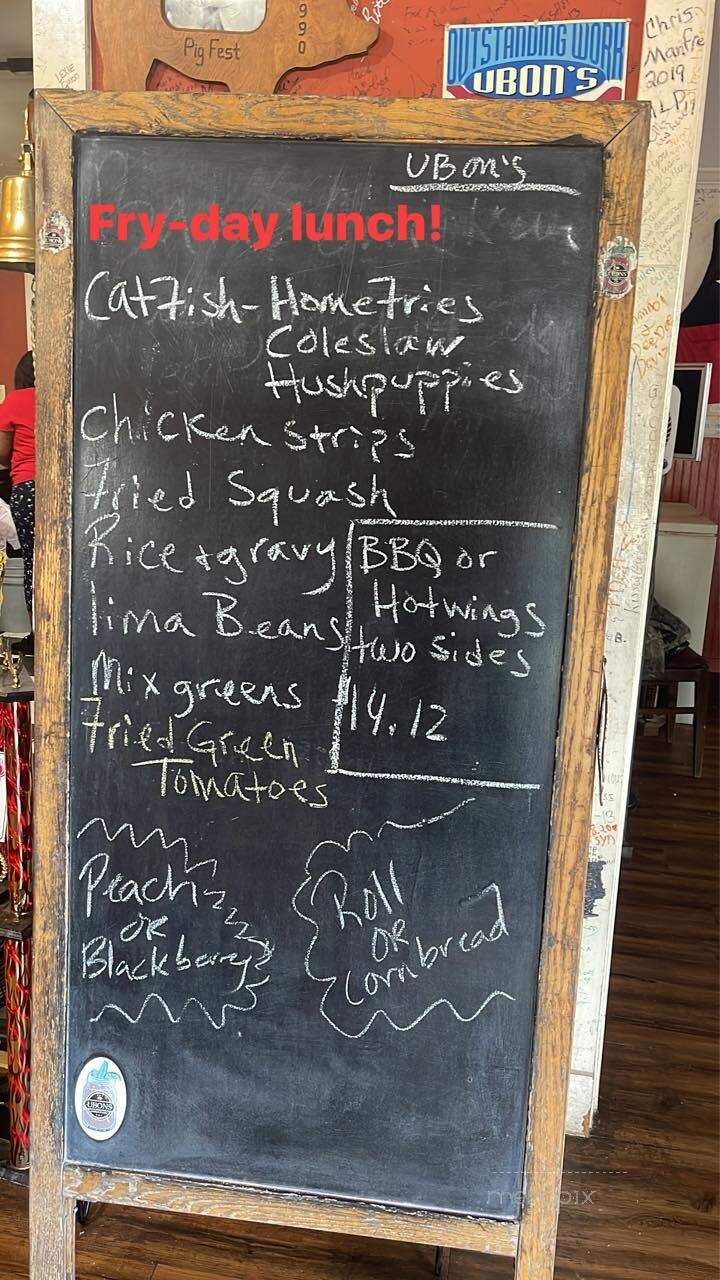 Pig Fest
1990
OUTSTANDING WORK
UBON'S
Chris
Manfre
2019
UBon's
Fry-day lunch!
Catfish- Homefries
Coleslaw
Hushpuppies
Chicken Strips
Fried Squash
Rice + gravy
lima Beans
Mix greens
Fried Green
Tomatoes
BBQ or
Hotwings
two sides
14.12
Peach
OR
Blackberry
Roll
OR
cornbread
UBONS